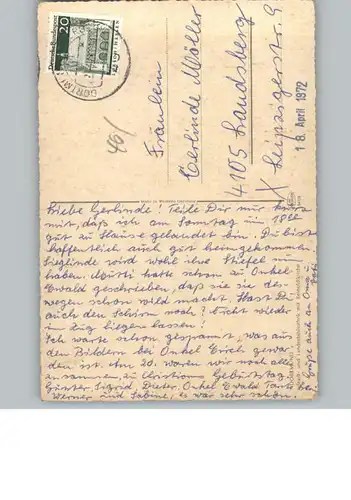 Deutsche Bundespost
20
DORTMUND
46/
Fräulein
Gerlinde Möller
4105 Landsberg
Leipzigerstr. 9
18. April 1972
Liebe Gerlinde! Teile Dir nur kurz
mit, daß ich am Sonntag um 18
gut zu Hause gelandet bin. Du bist
hoffentlich auch gut heimgekommen.
Sieglinde wird wohl ihre Stiefel
haben. Mutti hatte schon zu Onkel
Ewald geschrieben, daß sie sie des-
wegen schon wild macht. Hast Du
auch den Schirm noch? Nicht wieder
im Zug liegen lassen!
Ich warte schon gespannt, was aus
den Bildern bei Onkel Erich gewor-
den ist. Am 20. waren wir noch alle
zusammen zu Christians Geburtstag.
Günter, Sigrid, Dieter, Onkel Ewald Tante
Werner und Sabine, es war sehr schön.
Grüße auch an Oma u.